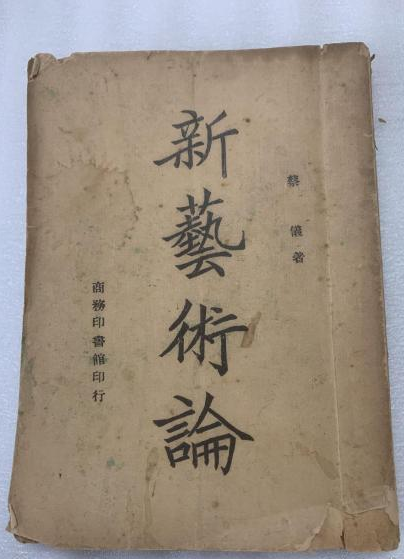 蔡儀著
新藝術論
商務印書館印行